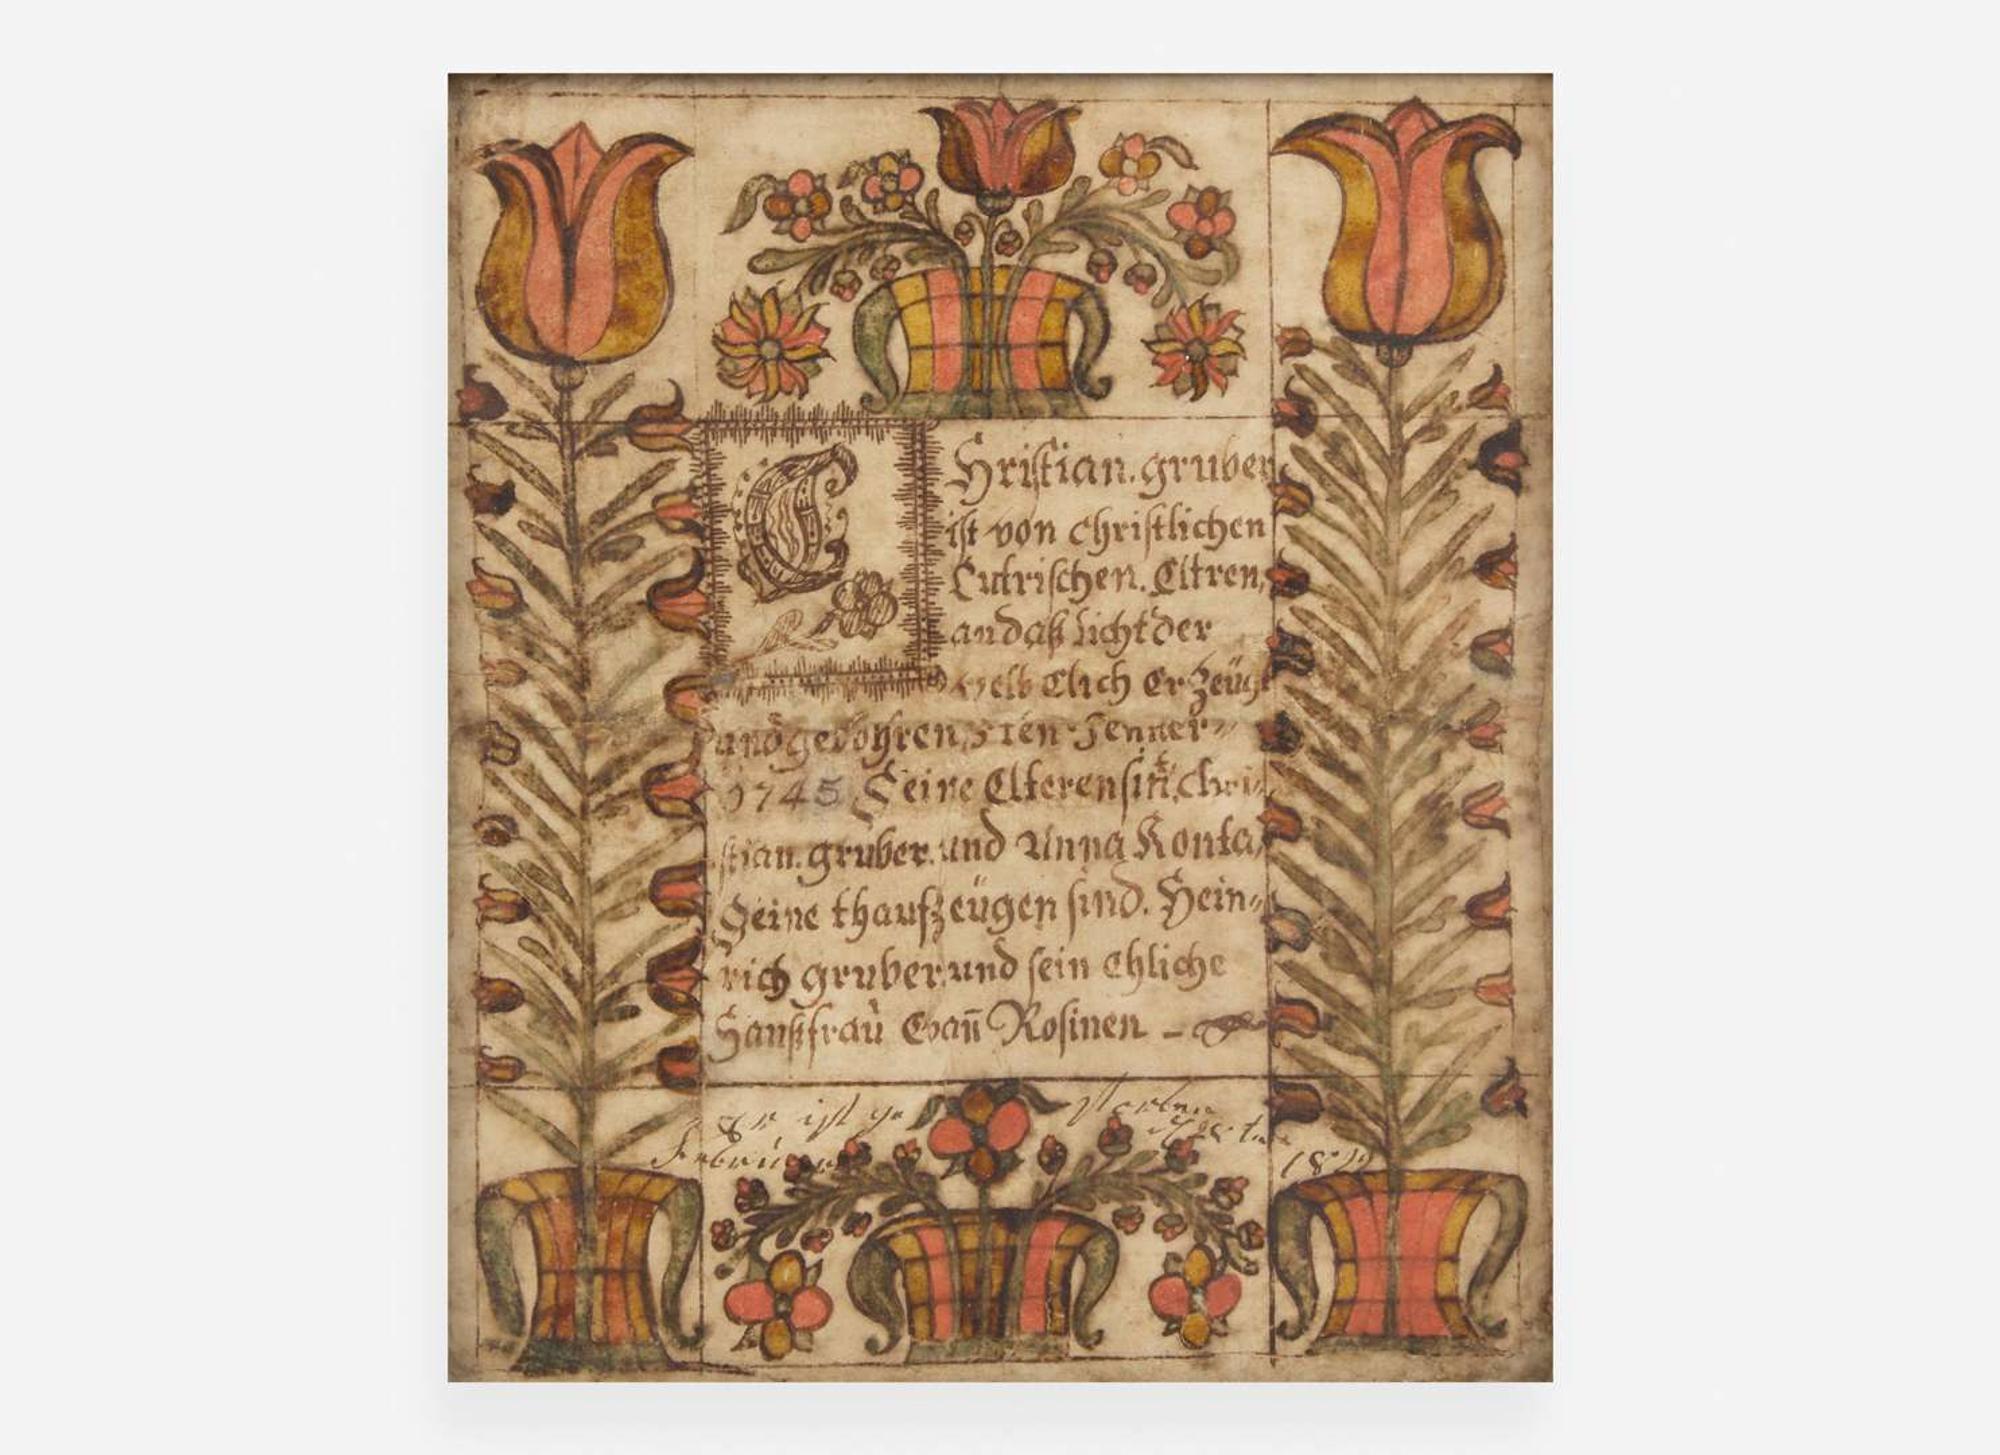 CHristian. gruber
ist von christlichen
Lutrischen. Eltren,
an daß Licht der
welt Elich Er Zeüg
und gebohren, 5 ten Jenner
1745 Seine Elteren sin̄t, chri⸗
stian. gruber. und Anna Konta,
Seine thaufzeügen sind. Hein⸗
rich gruber. und sein Ehliche
Haußfrau Evan̄ Rosinen
Er ist ge storben
Februar